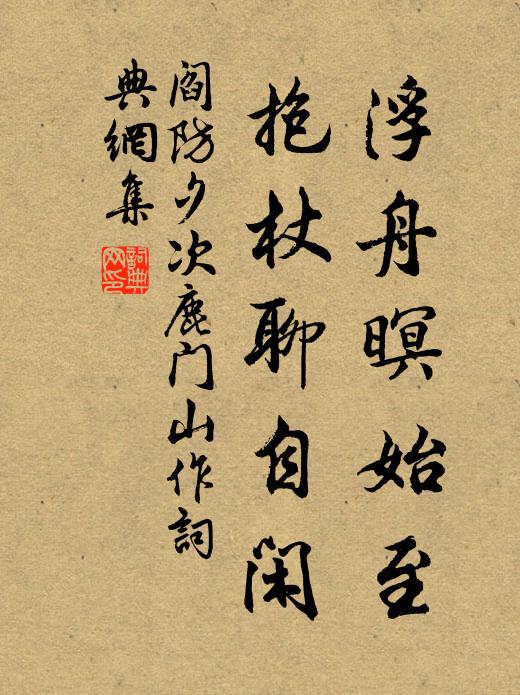 浮舟暝始至
抱杖聊自閑
閻防夕次鹿门山作詞
典網集
詞典
网印